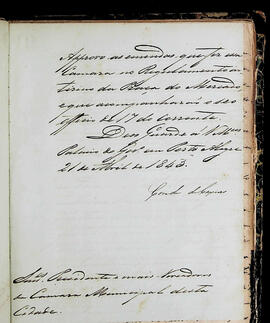 Approvo as emendas, que fez essa
Camara no Regulamento in-
terino da Praça do Mercado,
e que acompanharão o seo
officio de 17 do corrente.
Deos Guarde a
Palacio do Gov em Porto Alegre
21 de Abril de 1843.
Conde de Caxias
Snrs. Presidente e mais Vereadores
da Camara Municipal desta
Cidade.